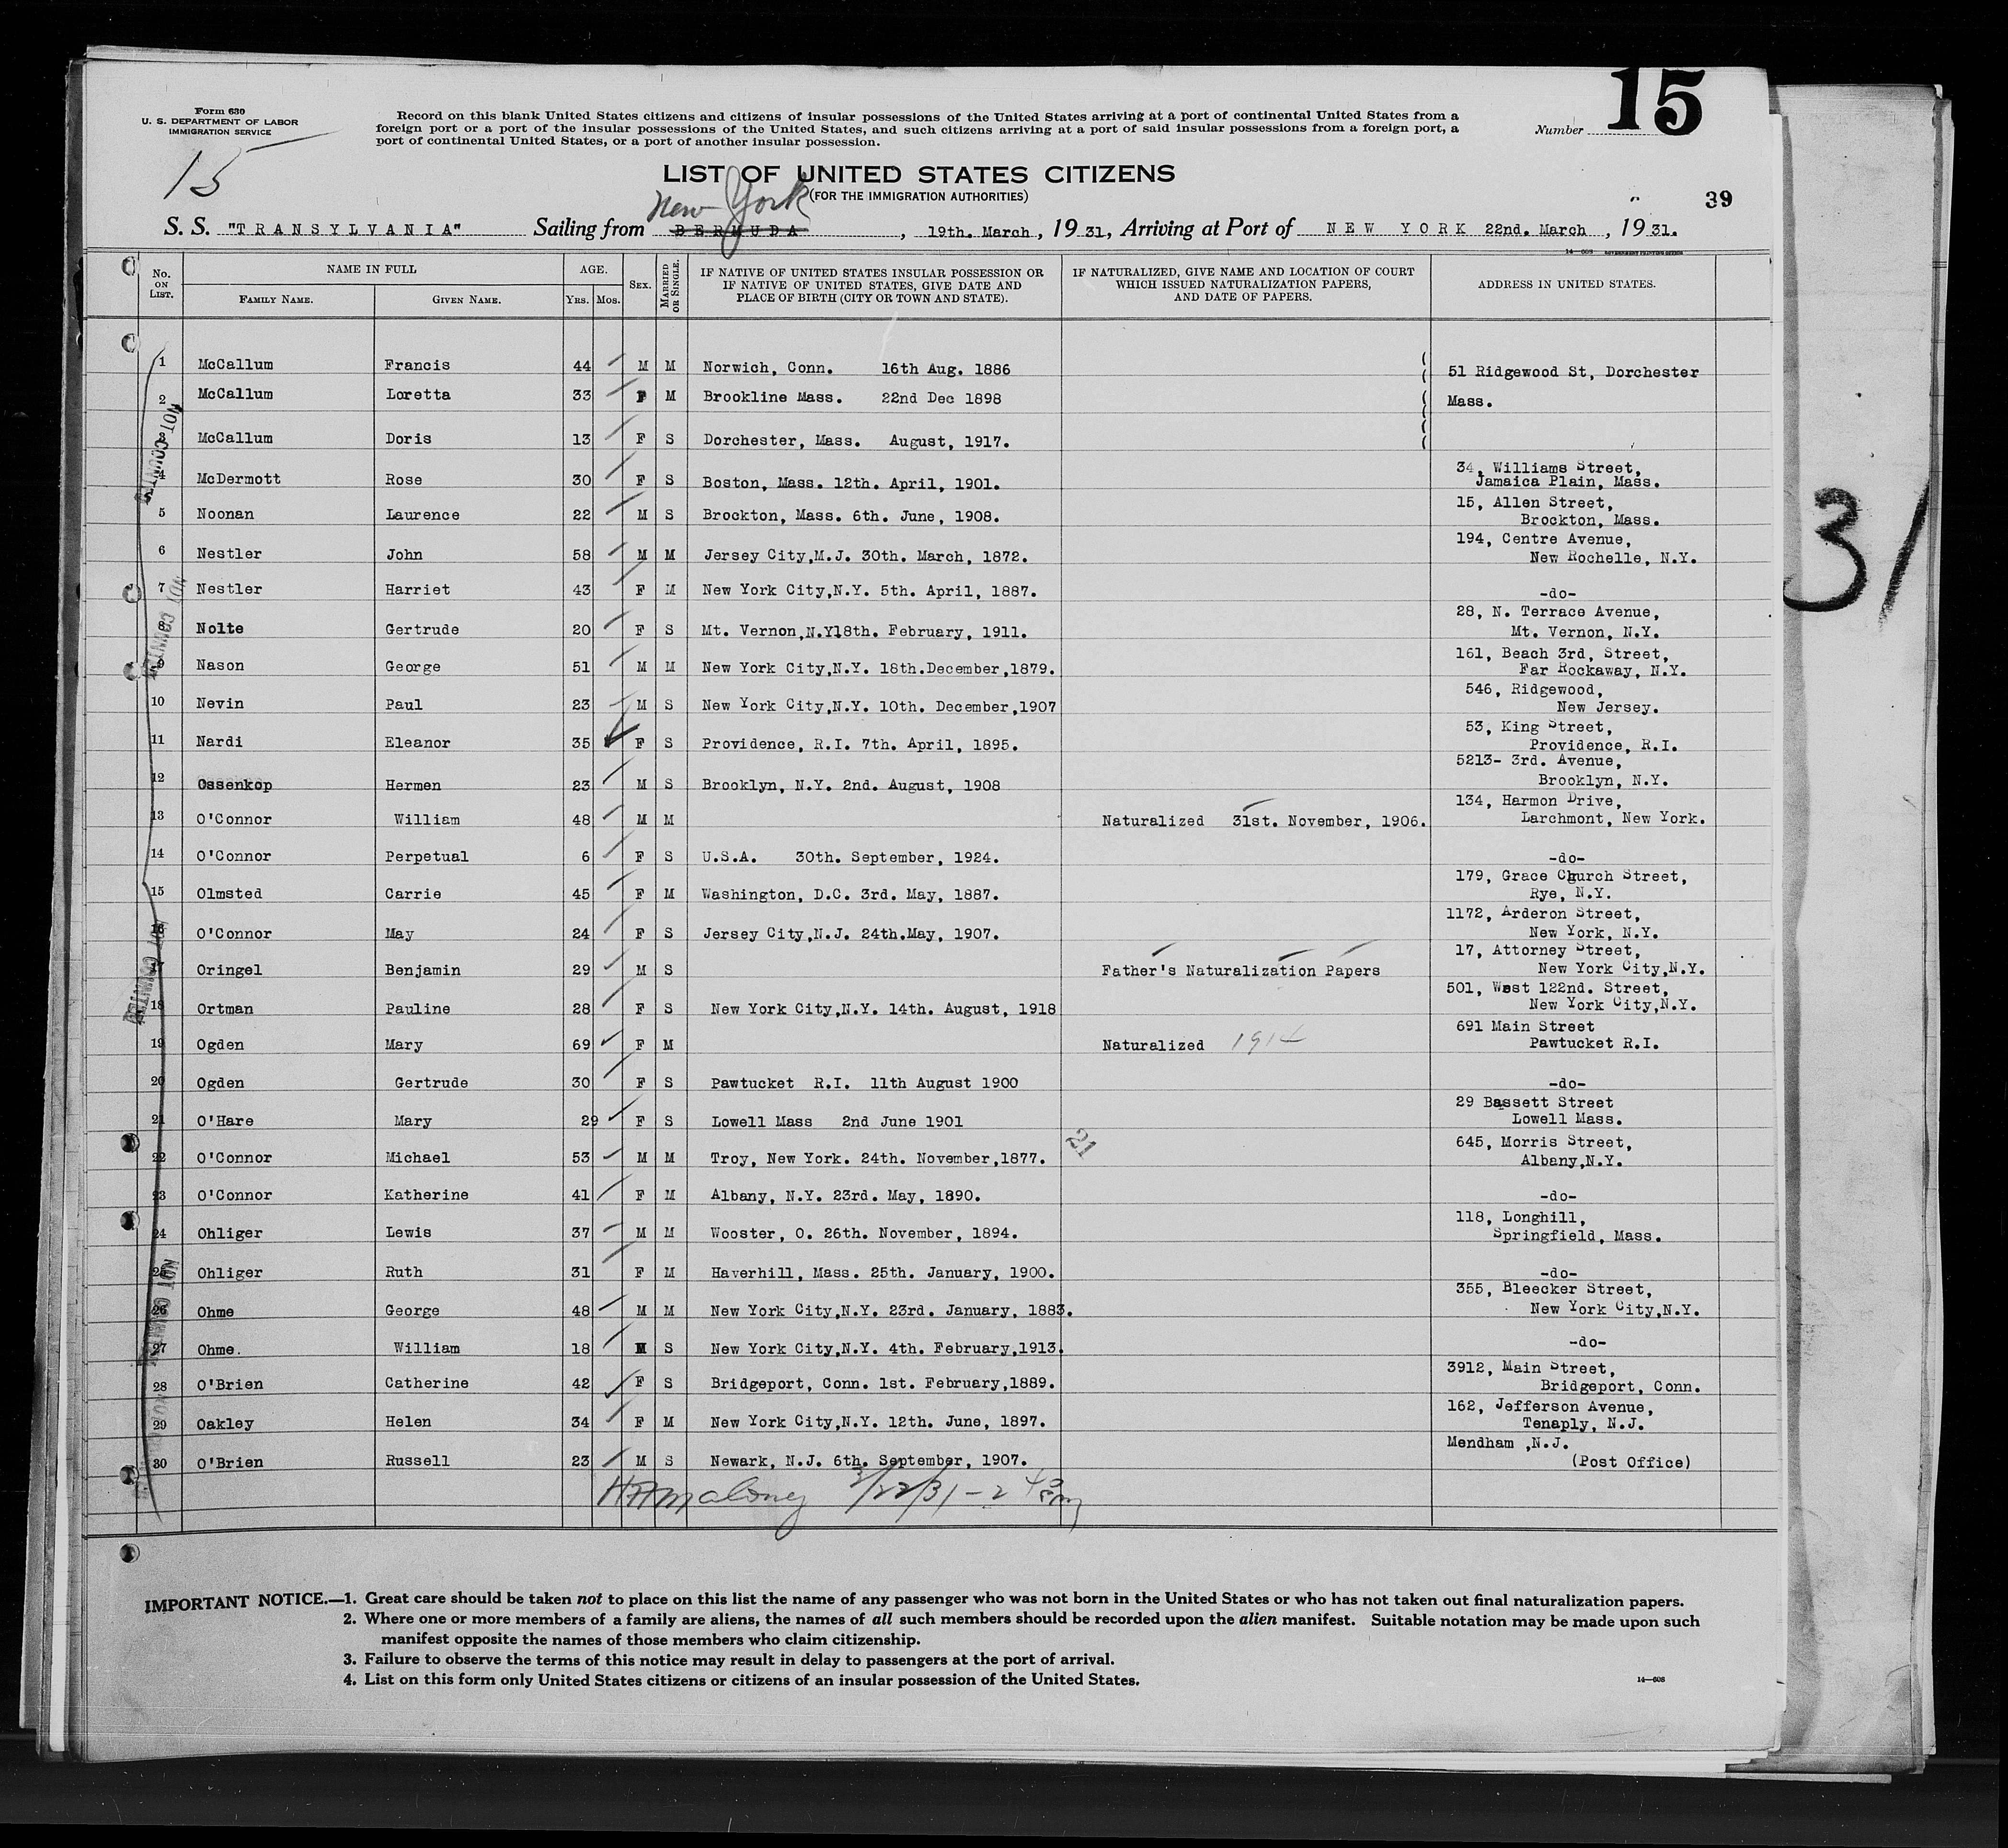 Form 630
U. S. DEPARTMENT OF LABOR
IMMIGRATION SERVICE
Record on this blank United States citizens and citizens of insular possessions of the United States arriving at a port of continental United States from a
foreign port or a port of the insular possessions of the United States, and such citizens arriving at a port of said insular possessions from a foreign port, a
port of continental United States, or a port of another insular possession.
Number 15
15
LIST OF UNITED STATES CITIZENS
(FOR THE IMMIGRATION AUTHORITIES)
39
New York
S. S. "TRANSYLVANIA" Sailing from BERMUDA, 19th. March, 1931, Arriving at Port of NEW YORK 22nd. March, 1931.
14—608 GOVERNMENT PRINTING OFFICE
No. ON LIST. NAME IN FULL FAMILY NAME. GIVEN NAME. AGE. YRS. MOS. SEX. MARRIED OR SINGLE. IF NATIVE OF UNITED STATES INSULAR POSSESSION OR IF NATIVE OF UNITED STATES, GIVE DATE AND PLACE OF BIRTH (CITY OR TOWN AND STATE). IF NATURALIZED, GIVE NAME AND LOCATION OF COURT WHICH ISSUED NATURALIZATION PAPERS, AND DATE OF PAPERS. ADDRESS IN UNITED STATES.
1 McCallum Francis 44 M M Norwich, Conn. 16th Aug. 1886 51 Ridgewood St, Dorchester
2 McCallum Loretta 33 F M Brookline Mass. 22nd Dec 1898 Mass.
3 McCallum Doris 13 F S Dorchester, Mass. August, 1917.
4 McDermott Rose 30 F S Boston, Mass. 12th. April, 1901. 34, Williams Street, Jamaica Plain, Mass.
5 Noonan Laurence 22 M S Brockton, Mass. 6th. June, 1908. 15, Allen Street, Brockton, Mass.
6 Nestler John 58 M M Jersey City,M.J. 30th. March, 1872. 194, Centre Avenue, New Rochelle, N.Y.
7 Nestler Harriet 43 F M New York City,N.Y. 5th. April, 1887. -do-
8 Nolte Gertrude 20 F S Mt. Vernon,N.Y18th. February, 1911. 28, N. Terrace Avenue, Mt. Vernon, N.Y.
9 Nason George 51 M M New York City,N.Y. 18th.December,1879. 161, Beach 3rd, Street, Far Rockaway, N.Y.
10 Nevin Paul 23 M S New York City,N.Y. 10th. December,1907 546, Ridgewood, New Jersey.
11 Nardi Eleanor 35 F S Providence, R.I. 7th. April, 1895. 53, King Street, Providence, R.I.
12 Ossenkop Hermen 23 M S Brooklyn, N.Y. 2nd. August, 1908 5213- 3rd. Avenue, Brooklyn, N.Y.
13 O'Connor William 48 M M Naturalized 31st. November, 1906. 134, Harmon Drive, Larchmont, New York.
14 O'Connor Perpetual 6 F S U.S.A. 30th. September, 1924. -do-
15 Olmsted Carrie 45 F M Washington, D.C. 3rd. May, 1887. 179, Grace Church Street, Rye, N.Y.
16 O'Connor May 24 F S Jersey City,N.J. 24th.May, 1907. 1172, Arderon Street, New York, N.Y.
17 Oringel Benjamin 29 M S Father's Naturalization Papers 17, Attorney Street, New York City,N.Y.
18 Ortman Pauline 28 F S New York City,N.Y. 14th. August, 1918 501, West 122nd. Street, New York City,N.Y.
19 Ogden Mary 69 F M Naturalized 1914 691 Main Street Pawtucket R.I.
20 Ogden Gertrude 30 F S Pawtucket R.I. 11th August 1900 -do-
21 O'Hare Mary 29 F S Lowell Mass 2nd June 1901 29 Bassett Street Lowell Mass.
21
22 O'Connor Michael 53 M M Troy, New York. 24th. November,1877. 645, Morris Street, Albany,N.Y.
23 O'Connor Katherine 41 F M Albany, N.Y. 23rd. May, 1890. -do-
24 Ohliger Lewis 37 M M Wooster, O. 26th. November, 1894. 118, Longhill, Springfield, Mass.
25 Ohliger Ruth 31 F M Haverhill, Mass. 25th. January, 1900. -do-
26 Ohme George 48 M M New York City,N.Y. 23rd. January, 1883. 355, Bleecker Street, New York City,N.Y.
27 Ohme. William 18 M S New York City,N.Y. 4th. February,1913. -do-
28 O'Brien Catherine 42 F S Bridgeport, Conn. 1st. February,1889. 3912, Main Street, Bridgeport, Conn.
29 Oakley Helen 34 F M New York City,N.Y. 12th. June, 1897. 162, Jefferson Avenue, Tenaply, N.J.
30 O'Brien Russell 23 M S Newark, N.J. 6th. September, 1907. Mendham ,N.J. (Post Office)
Maloney 3/22/31
NOT COUNTED
NOT COUNTED
NOT COUNTED
31
IMPORTANT NOTICE.—1. Great care should be taken not to place on this list the name of any passenger who was not born in the United States or who has not taken out final naturalization papers.
2. Where one or more members of a family are aliens, the names of all such members should be recorded upon the alien manifest. Suitable notation may be made upon such
manifest opposite the names of those members who claim citizenship.
3. Failure to observe the terms of this notice may result in delay to passengers at the port of arrival.
4. List on this form only United States citizens or citizens of an insular possession of the United States.
14—608